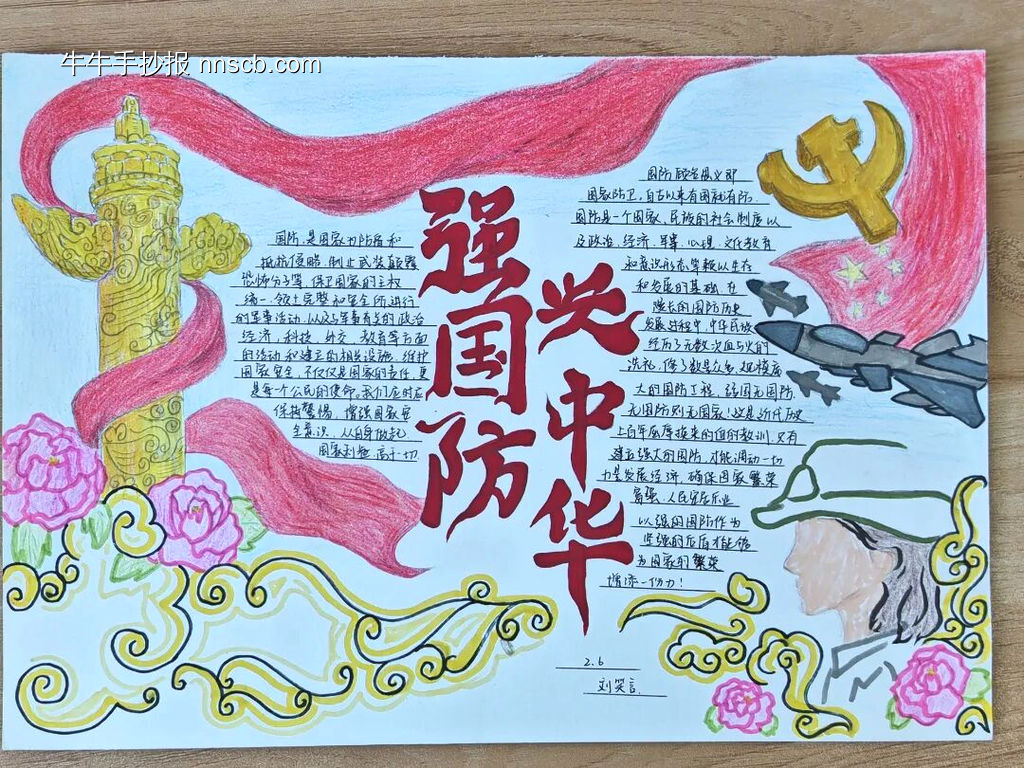 牛牛手抄报 nnscb.com
强国防
兴中华
国防,是国家为防备和
抵抗侵略,制止武装颠覆
恐怖分子等,保卫国家的主权
统一、领土完整和安全所进行
的军事活动,以及与军事有关的政治
经济,科技,外交,教育等方面
的活动和建立的相关设施,维护
国家安全,不仅仅是国家的责任,更
是每个公民的使命。我们应时应
保持警惕,增强国家安
全意识,从自身做起
国家利益,高于一切
国防顾名思义即
国家防卫,自古以来有国就有防
国防是一个国家、民族的社会制度以
及政治,经济,军事,心理,文化教育
和意识形态等赖以生存
和发展的基础,在
漫长的国防历史
发展过程中,中华民族
经历了无数次血与火的
洗礼,修了数量众多,规模庞
大的国防工程,强国无国防,
无国防则无国家!这是近代历史
上百年屈辱换来的血的教训,只有
建立强大的国防,才能调动一切
力量发展经济,确保国家繁荣
富强、人民安居乐业
以强的国防作为
坚强的后盾才能够
为国家的繁荣
增添一份力!
2.6
刘笑言